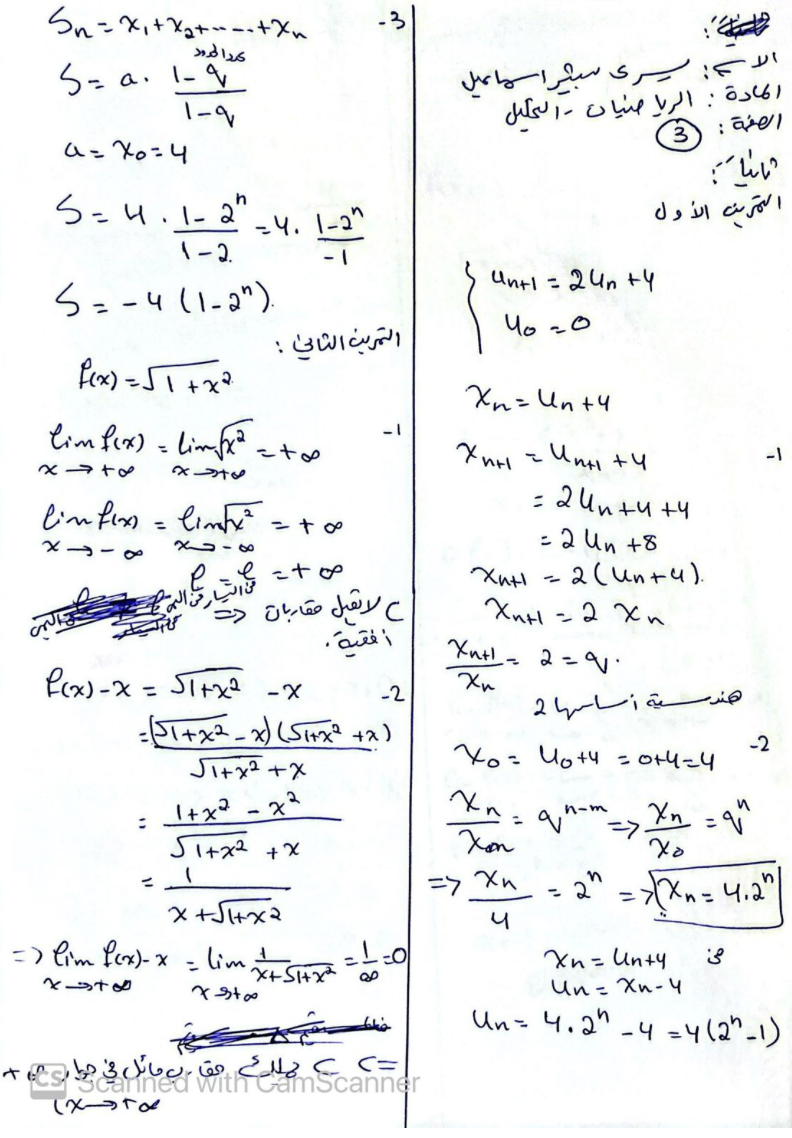 الاسم: يسرى سبيتر اسماعيل
المادة: الرياضيات - التحليل
الصفحة: 3
ثانياً:
التمرين الأول
u_{n+1} = 2u_n + 4
u_0 = 0
x_n = u_n + 4
-1 x_{n+1} = u_{n+1} + 4
= 2u_n + 4 + 4
= 2u_n + 8
x_{n+1} = 2(u_n + 4).
x_{n+1} = 2 x_n
x_{n+1}/x_n = 2 = q.
هندسية أساسها 2
-2 x_0 = u_0 + 4 = 0+4 = 4
x_n/x_m = q^{n-m} => x_n/x_0 = q^n
=> x_n/4 = 2^n => x_n = 4.2^n
x_n = u_n + 4
u_n = x_n - 4
u_n = 4.2^n - 4 = 4(2^n - 1)
-3 S_n = x_1 + x_2 + ..... + x_n
S = a . (1 - q^{عدد الحدود})/(1 - q)
a = x_0 = 4
S = 4 . (1 - 2^n)/(1 - 2) = 4 . (1 - 2^n)/(-1)
S = -4 (1 - 2^n).
التمرين الثاني:
f(x) = √(1 + x²)
-1 lim f(x) = lim √x² = +∞
x → +∞ x → +∞
lim f(x) = lim √x² = +∞
x → -∞ x → -∞
= +∞
=> C لا تقبل مقاربات
أفقية.
-2 f(x) - x = √(1+x²) - x
= (√(1+x²) - x)(√(1+x²) + x) / (√(1+x²) + x)
= (1 + x² - x²) / (√(1+x²) + x)
= 1 / (x + √(1+x²))
=> lim f(x) - x = lim 1/(x + √(1+x²)) = 1/∞ = 0
x → +∞ x → +∞
=> C مقارب مائل في جوار +∞
(x → +∞
CS Scanned with CamScanner